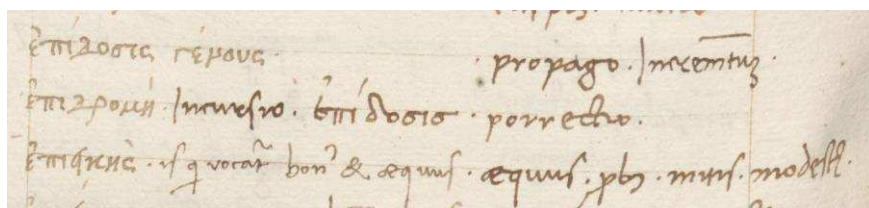 ἐπίδοσις γέρους · propago · Incremẽtuʒ ·
ἐπιδρομή · Incursio · ἐπίδοσις · porrectio ·
ἐπιεικής · is q̃ vocat᷑ bon᾽ & æquus · æquus · ꝓbꝰ · mitis · modest᾽